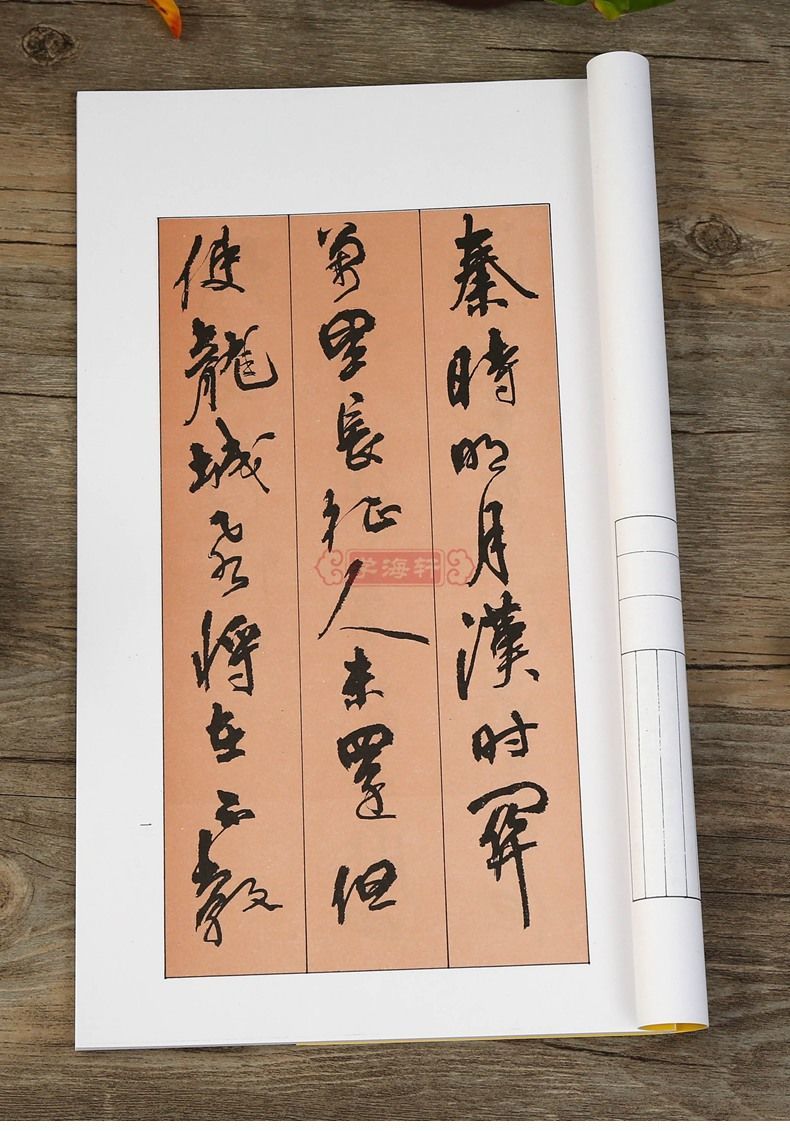 秦時明月漢时關
萬里長征人未還但
使龍城飛將在不教
学海轩
一